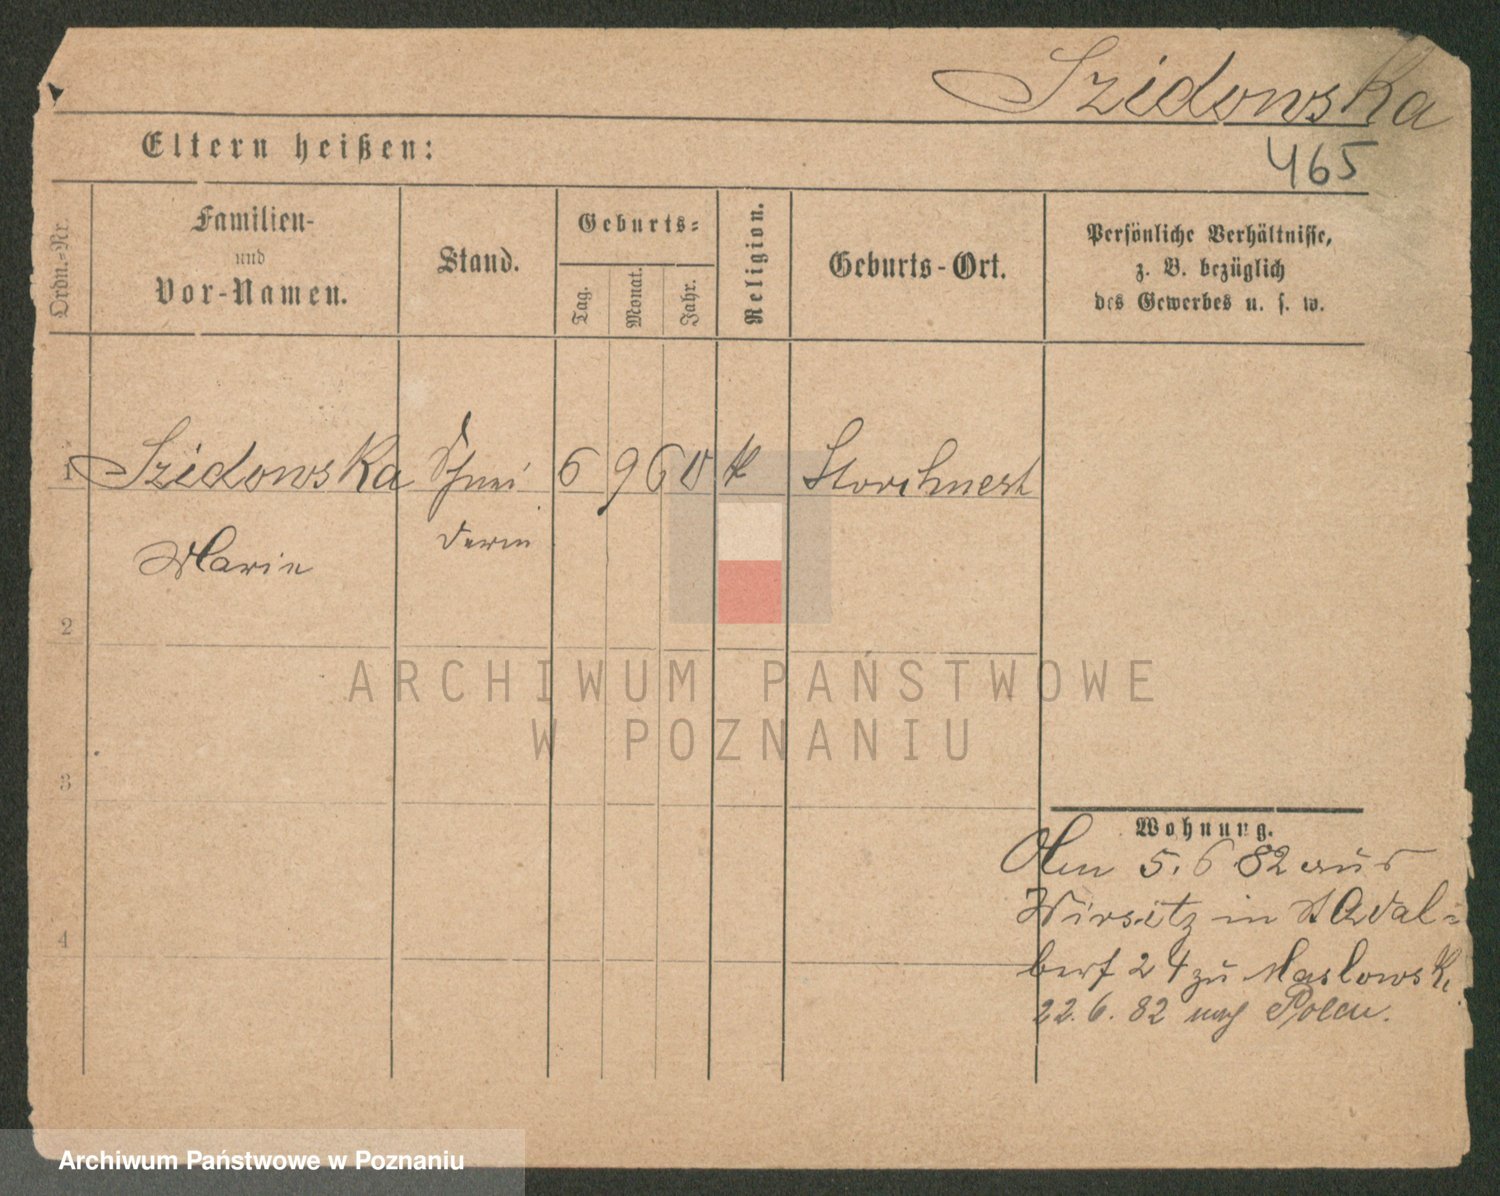 Szidowska
Eltern heißen:
465
Ordn.-Nr.
Familien-
und
Vor-Namen.
Stand.
Geburts-
Tag.
Monat.
Jahr.
Religion.
Geburts-Ort.
Persönliche Verhältnisse,
z. B. bezüglich
des Gewerbes u. s. w.
1 Szidowska Schnei 6 9 60 k Storchnest
derin
Marie
2
ARCHIWUM PAŃSTWOWE
W POZNANIU
3
Wohnung.
5. 6 82 aus
Wirsitz in St Adal-
bert 24 zu Maslowski
4
22. 6. 82 nach Polen.
Archiwum Państwowe w Poznaniu